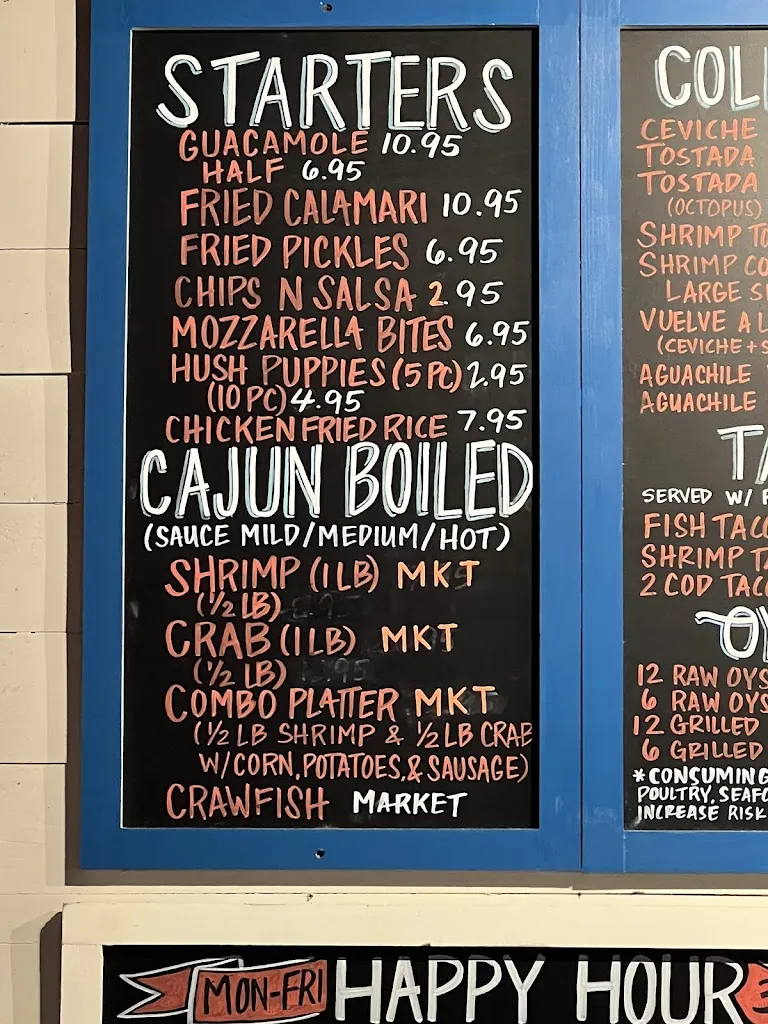 STARTERS
GUACAMOLE 10.95
HALF 6.95
FRIED CALAMARI 10.95
FRIED PICKLES 6.95
CHIPS N SALSA 2.95
MOZZARELLA BITES 6.95
HUSH PUPPIES (5 PC) 2.95
(10 PC) 4.95
CHICKEN FRIED RICE 7.95
CAJUN BOILED
(SAUCE MILD/MEDIUM/HOT)
SHRIMP (1 LB) MKT
(1/2 LB)
CRAB (1 LB) MKT
(1/2 LB)
COMBO PLATTER MKT
(1/2 LB SHRIMP & 1/2 LB CRAB
W/ CORN, POTATOES, & SAUSAGE)
CRAWFISH MARKET
CEVICHE
TOSTADA
TOSTADA
(OCTOPUS)
SHRIMP
SHRIMP
LARGE
VUELVE A
(CEVICHE +
AGUACHILE
AGUACHILE
SERVED W/
FISH
SHRIMP
2 COD
12 RAW
6 RAW
12 GRILLED
6 GRILLED
*CONSUMING
POULTRY,
INCREASE RISK
MON-FRI HAPPY HOUR